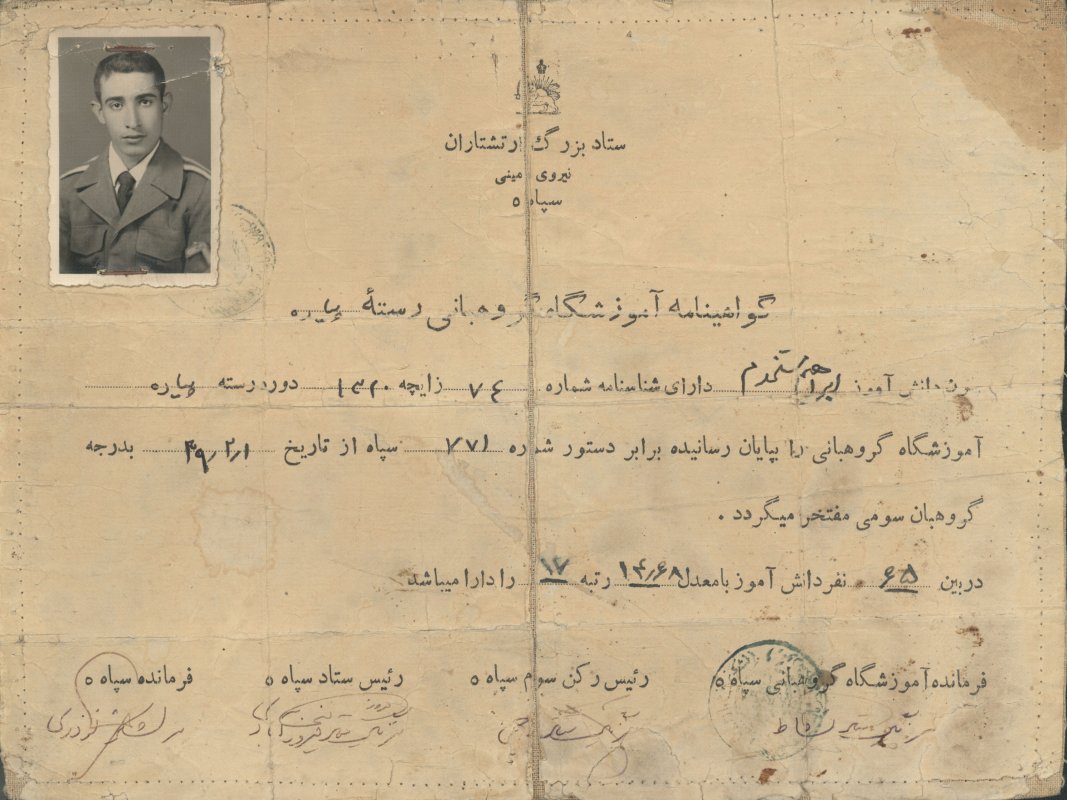 ستاد بزرگ ارتشتاران
نیروی زمینی
سپاه ۵
گواهینامه آموزشگاه گروهبانی رستهٔ پیاده
دانش آموز دارای شناسنامه شماره ۷۴ زایچه ۱۳۲۰ دوره رسته پیاده
آموزشگاه گروهبانی را بپایان رسانیده برابر دستور شماره ۷۷۱ سپاه از تاریخ ۳۹٫۲٫۱ بدرجه
گروهبان سومی مفتخر میگردد .
دربین ۶۵ نفر دانش آموز با معدل ۱۴٫۶۸ رتبه ۱۷ را دارا میباشد
فرمانده آموزشگاه گروهبانی سپاه ۵ رئیس رکن سوم سپاه ۵ رئیس ستاد سپاه ۵ فرمانده سپاه ۵